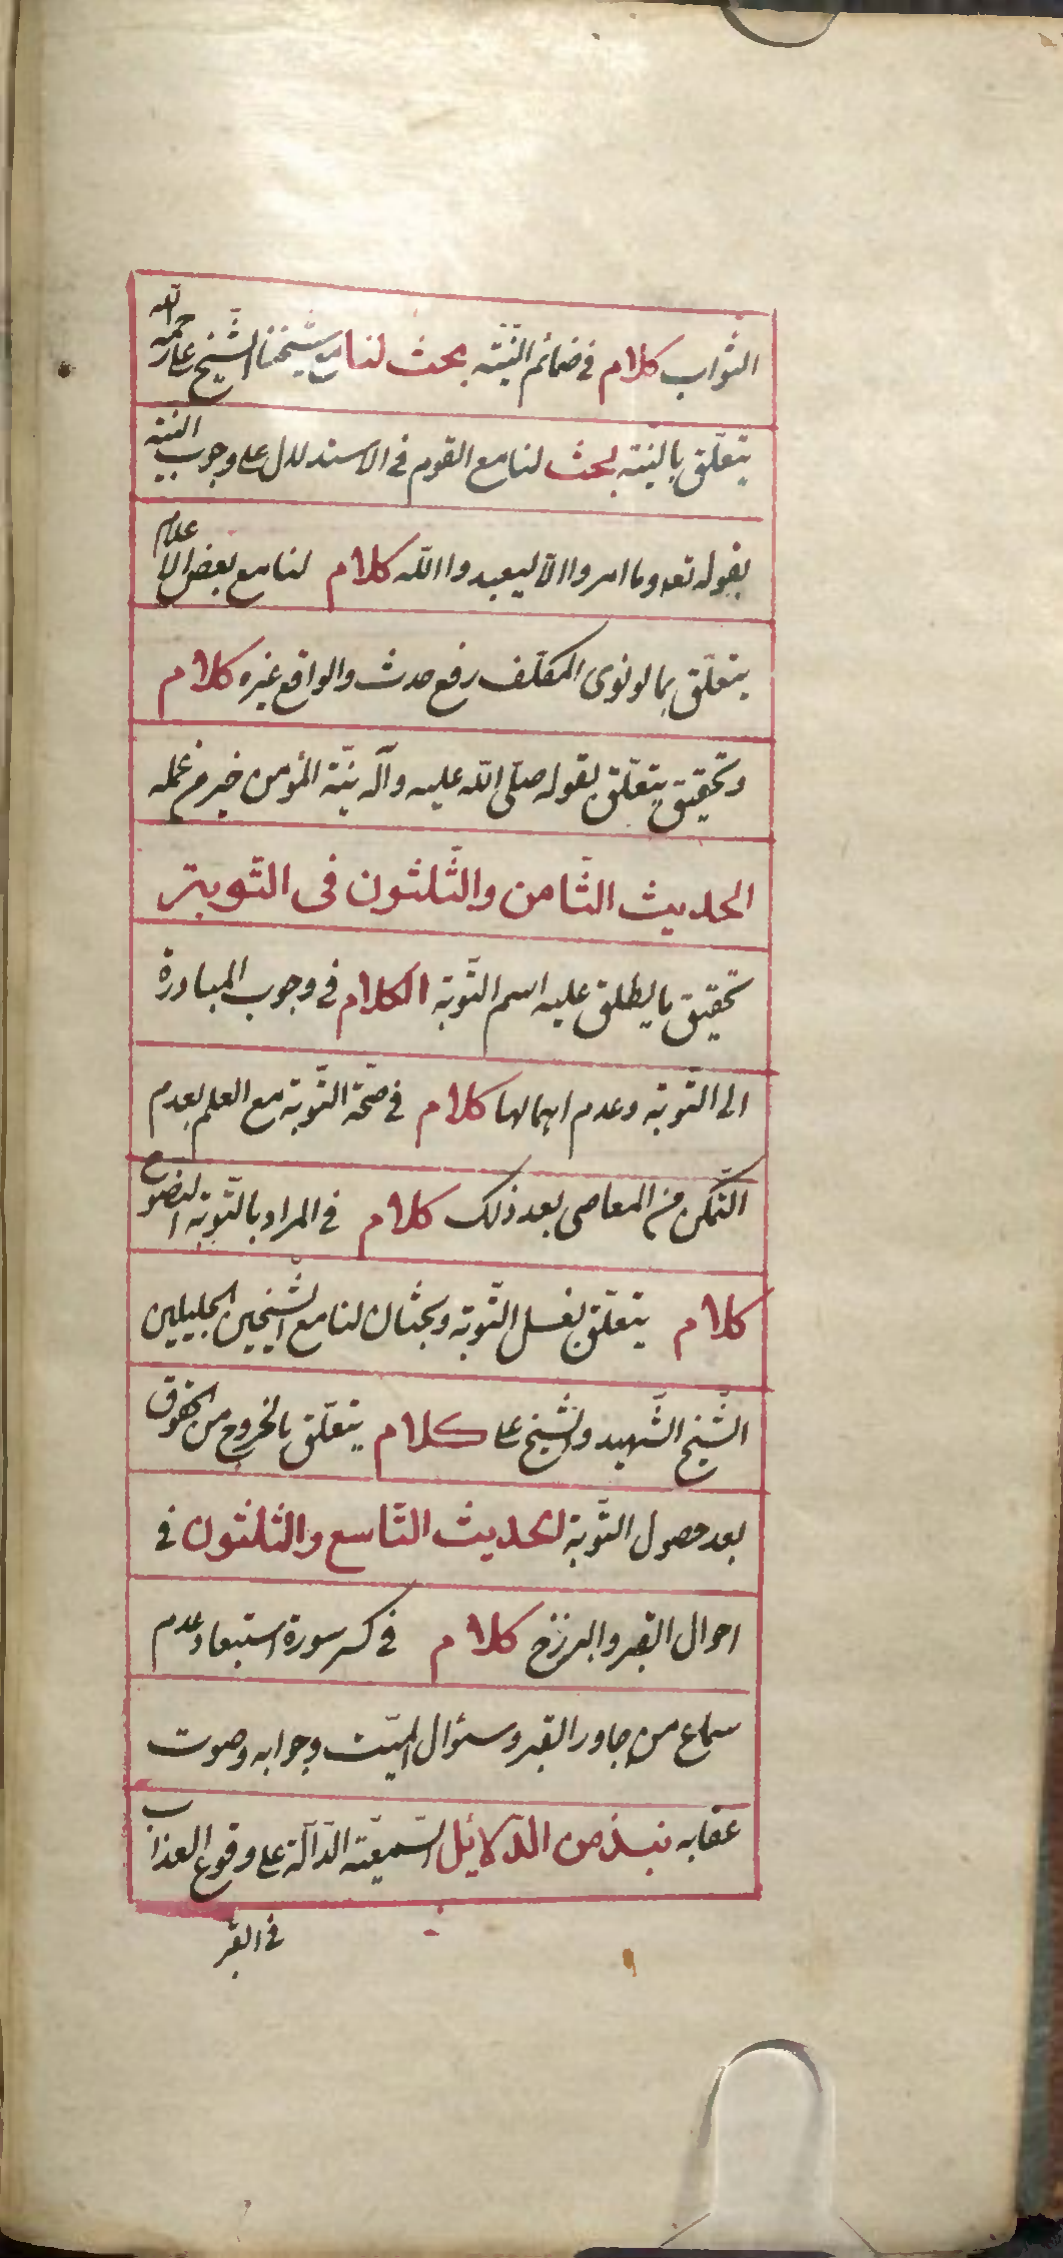 الثواب كلام فى ضمائم النّيّة بحث لنا مع شيخنا الشّيخ على رحمه اللّه
يتعلّق بالنّية بحث لنا مع القوم فى الاستدلال على وجوب النية
بقوله تعه وما امروا الّا ليعبدوا اللّه كلام لنا مع بعض الاعلام
يتعلّق بما لو نوى المكلّف رفع حدث والواقع غيره كلام
وتحقيق يتعلّق بقوله صلّى اللّه عليه وآله نيّة المؤمن خير من عمله
الحديث الثّامن والثّلثون فى التّوبة
تحقيق ما يطلق عليه اسم التّوبة الكلام فى وجوب المبادرة
الى التّوبة وعدم اهمالها كلام فى صحّة التّوبة مع العلم بعدم
التّمكن من المعاصى بعد ذلك كلام فى المراد بالتّوبة النصوح
كلام يتعلّق بغسل التّوبة وبحثان لنا مع الشّيخين الجليلين
الشّيخ الشّهيد والشّيخ على كلام يتعلّق بالخروج من الحقوق
بعد حصول التّوبة الحديث التّاسع والثلثون فى
احوال القبر والبرزخ كلام فى كسر سورة استبعاد عدم
سماع من جاور القبر وسئوال الميّت وجوابه وصوت
عقابه نبذ من الدّلائل السّمعيّة الدّالّة على وقوع العذاب
فى القبر